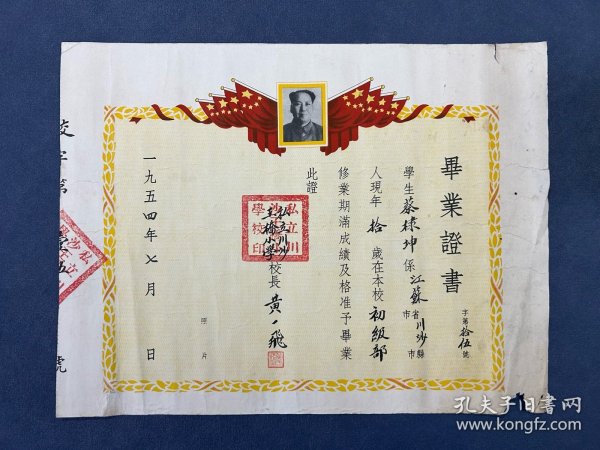 畢業證書
字第拾伍號
學生蔡棣坤係江蘇省川沙縣
市 市
人現年拾歲在本校初級部
修業期滿成績及格准予畢業
此證
私立川沙
小學校長黃一飛
私立川
學校印
照片
一九五四年七月 日
校字第 伍號
孔夫子旧書网
www.kongfz.com